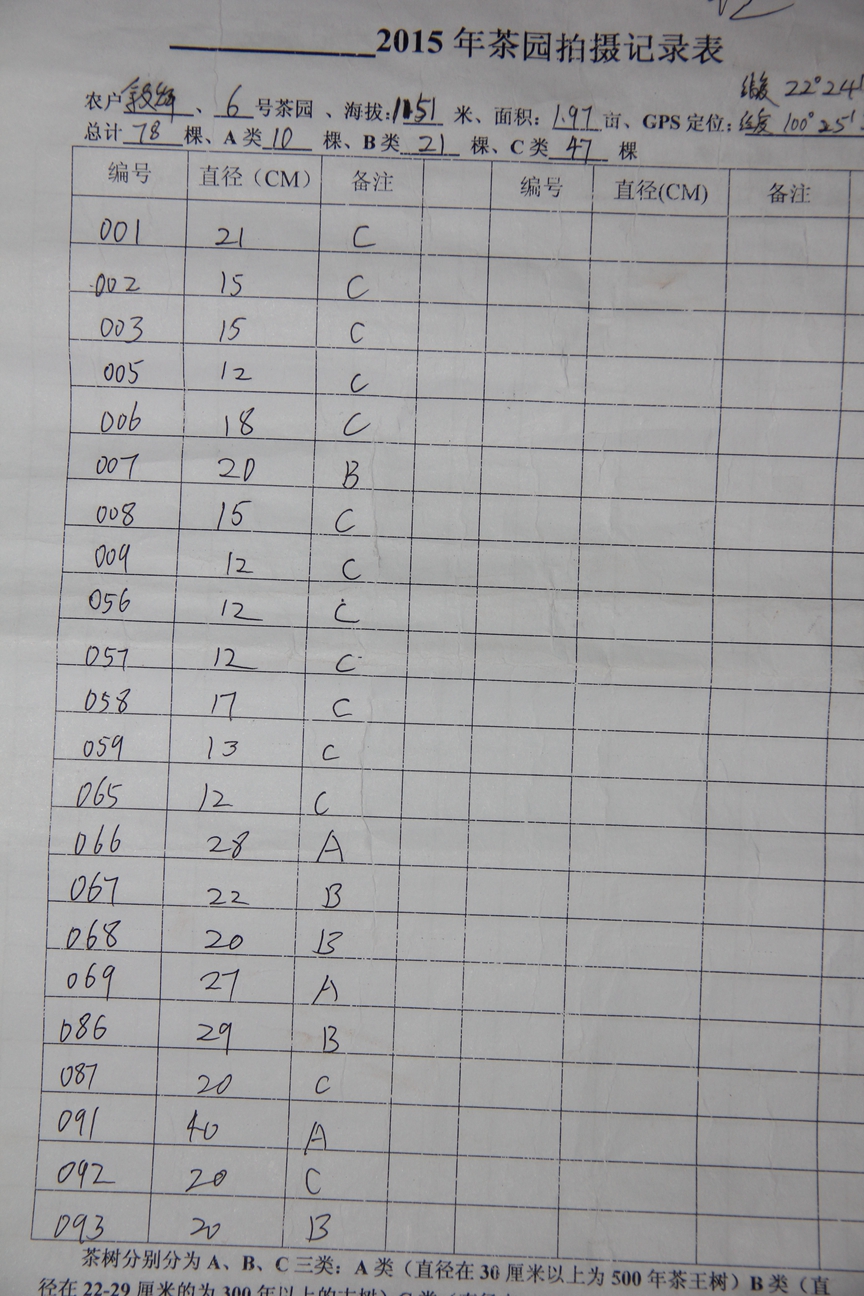 2015 年茶园拍摄记录表
纬度 22°24'
农户 、 6 号茶园 、海拔: 1151 米、面积: 1.97 亩、GPS 定位: 经度 100°25'
总计 78 棵、A 类 10 棵、B 类 21 棵、C 类 47 棵
编号 直径（CM） 备注 编号 直径(CM) 备注
001 21 C
002 15 C
003 15 C
005 12 C
006 18 C
007 20 B
008 15 C
009 12 C
056 12 C
057 12 C
058 17 C
059 13 C
065 12 C
066 28 A
067 22 B
068 20 B
069 27 A
086 29 B
087 20 C
091 40 A
092 20 C
093 20 B
茶树分别分为 A、B、C 三类：A 类（直径在 30 厘米以上为 500 年茶王树）B 类（直
径在 22-29 厘米的为 300 年以上的古树）C 类（直径